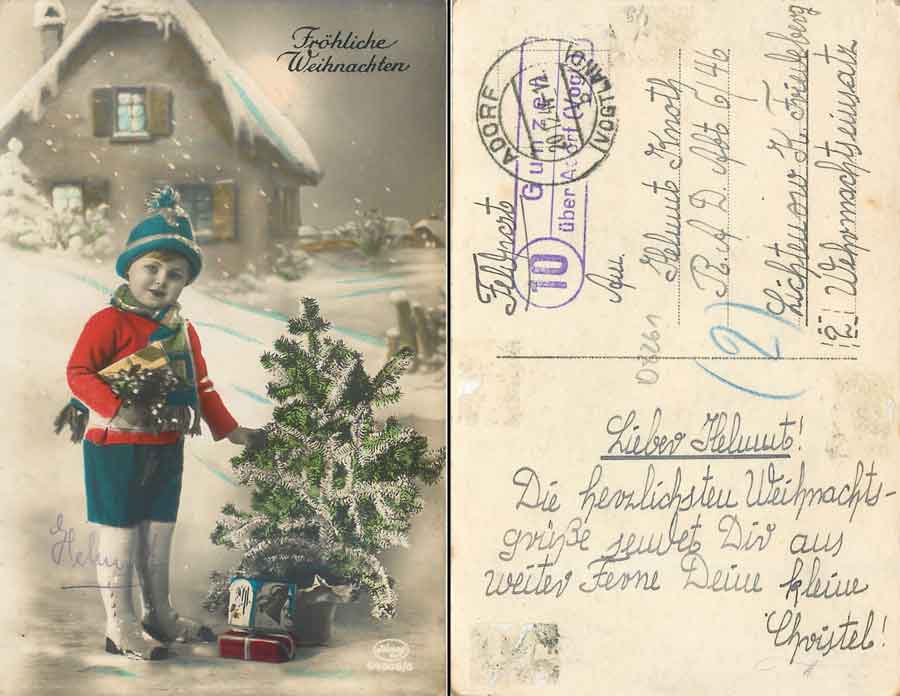 Fröhliche
Weihnachten
Helmut
Feldpost
ADORF
(VOGTLAND)
10
Gunzen
über Adorf (Vogtl)
An
Helmut Knoth
R.A.D. Abt 6/46
Lichtenow K. Friedeberg
"Z" Wehrmachtseinsatz
(2)
Lieber Helmut!
Die herzlichsten Weihnachts-
grüße sendet Dir aus
weiter Ferne Deine kleine
Christel!